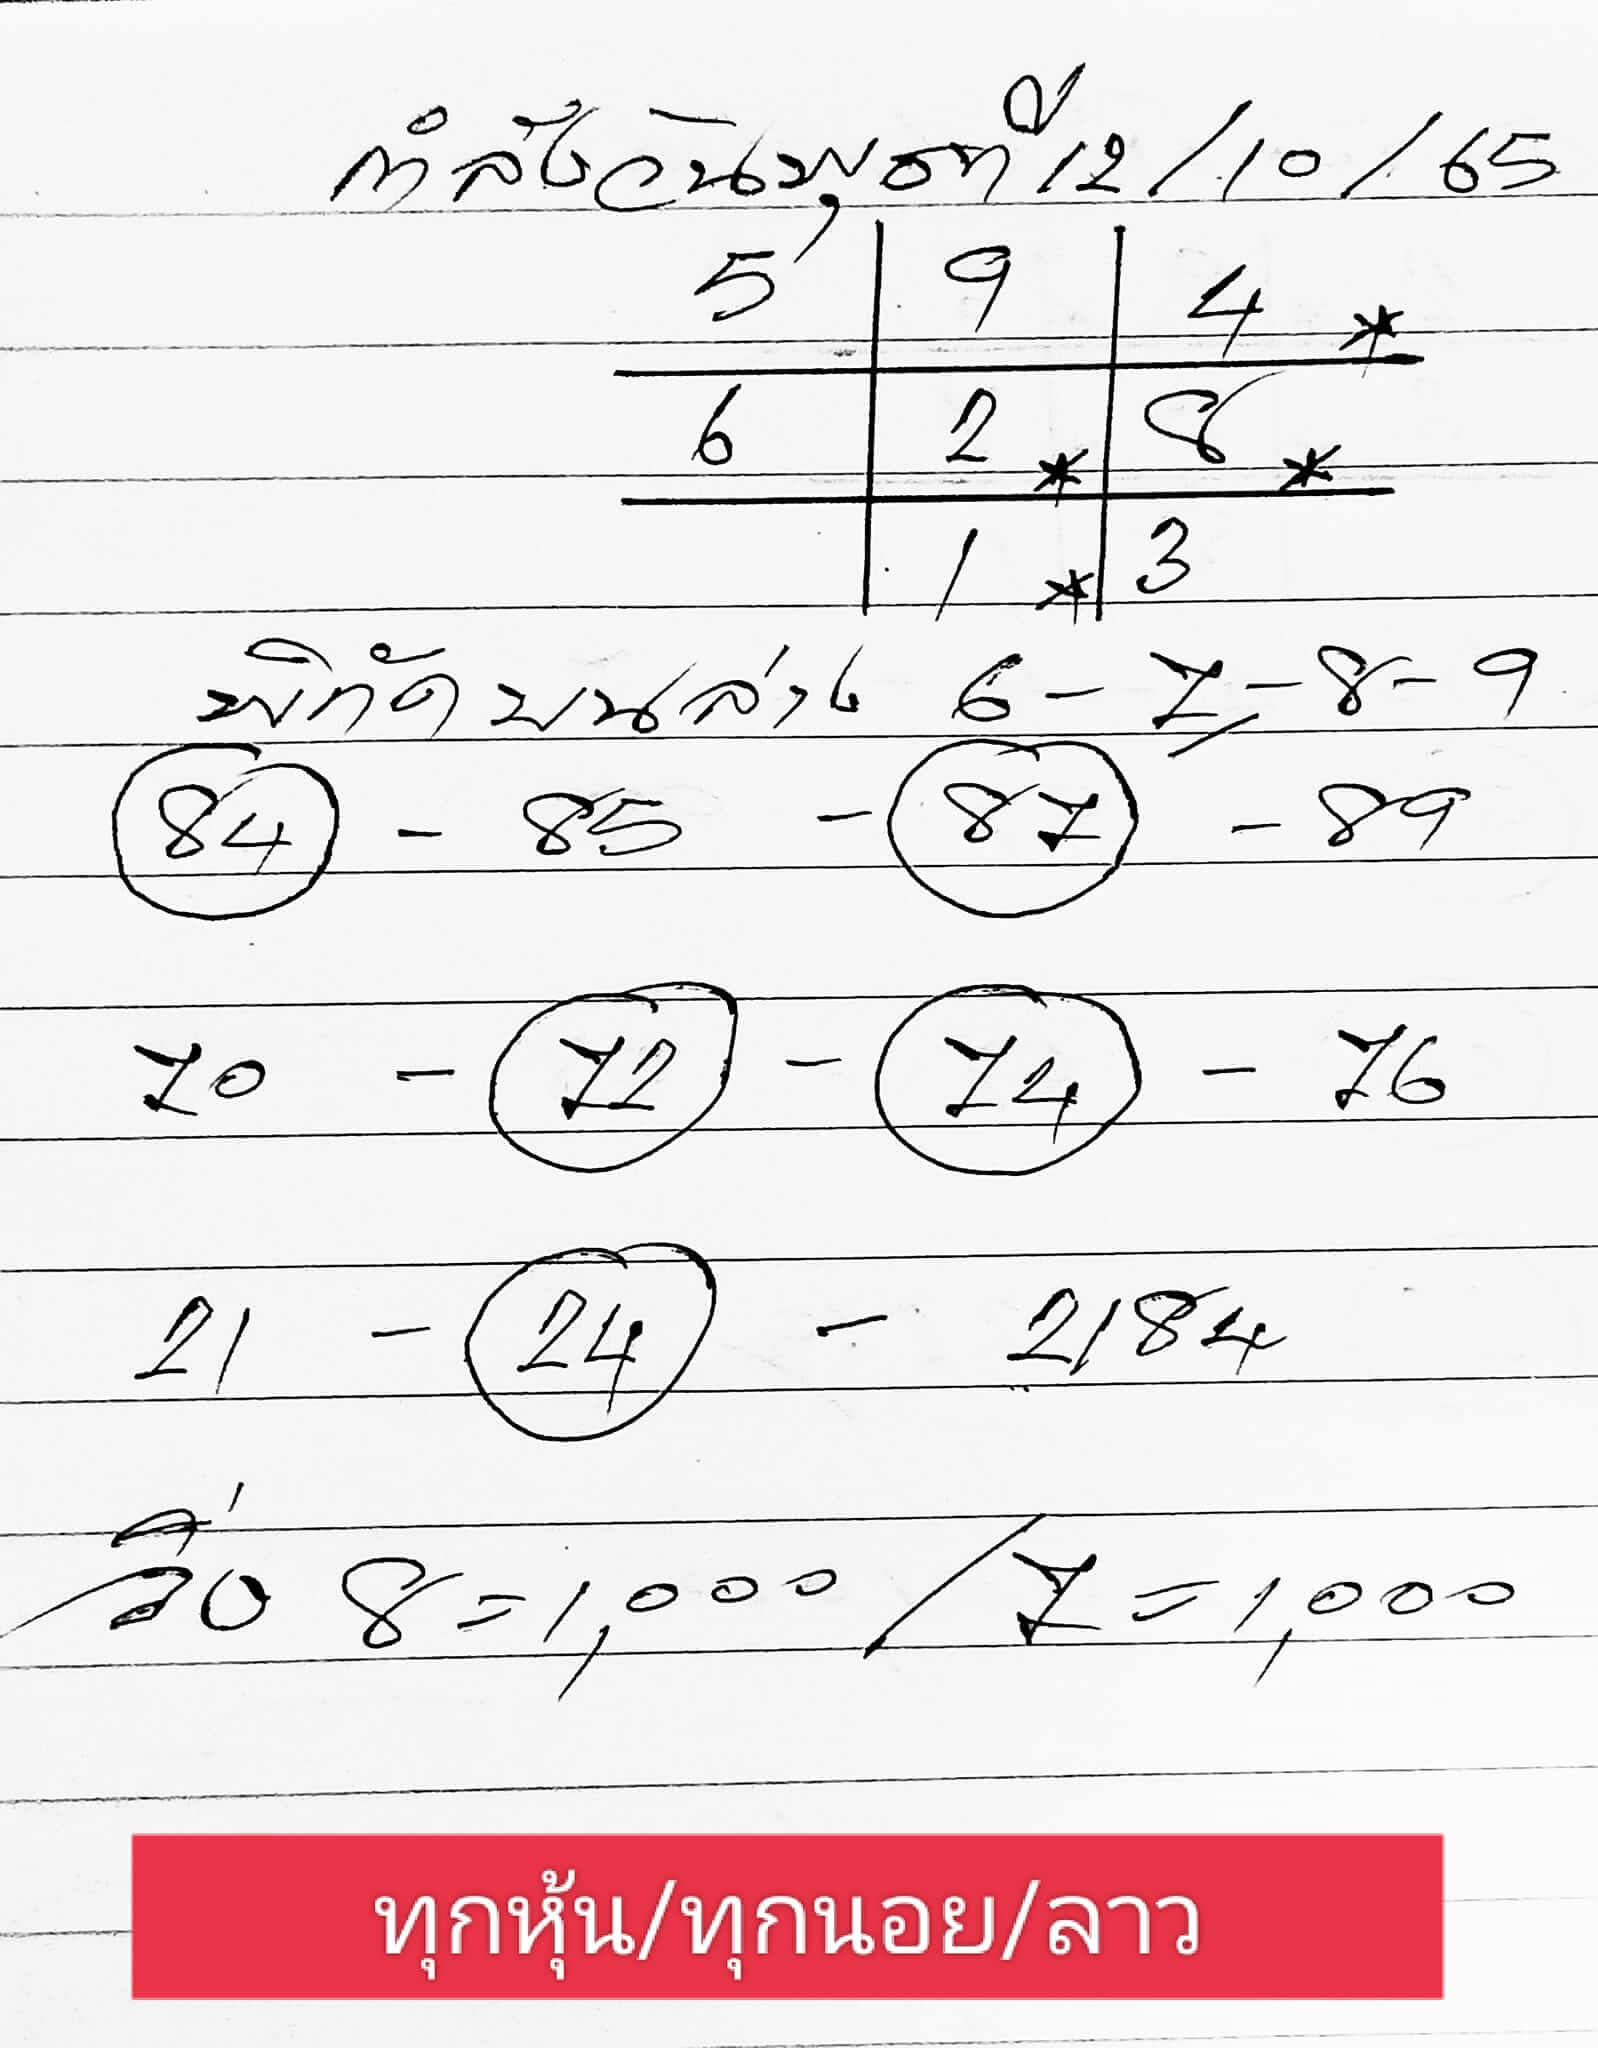 กำลังวันพุธที่ 12/10/65
5 9 4 *
6 2 * 8 *
1 * 3
พิกัด บนล่าง 6 - 7 - 8 - 9
84 - 85 - 87 - 89
70 - 72 - 74 - 76
21 - 24 - 2184
8 = 1,000 / 7 = 1,000
ทุกหุ้น/ทุกนอย/ลาว